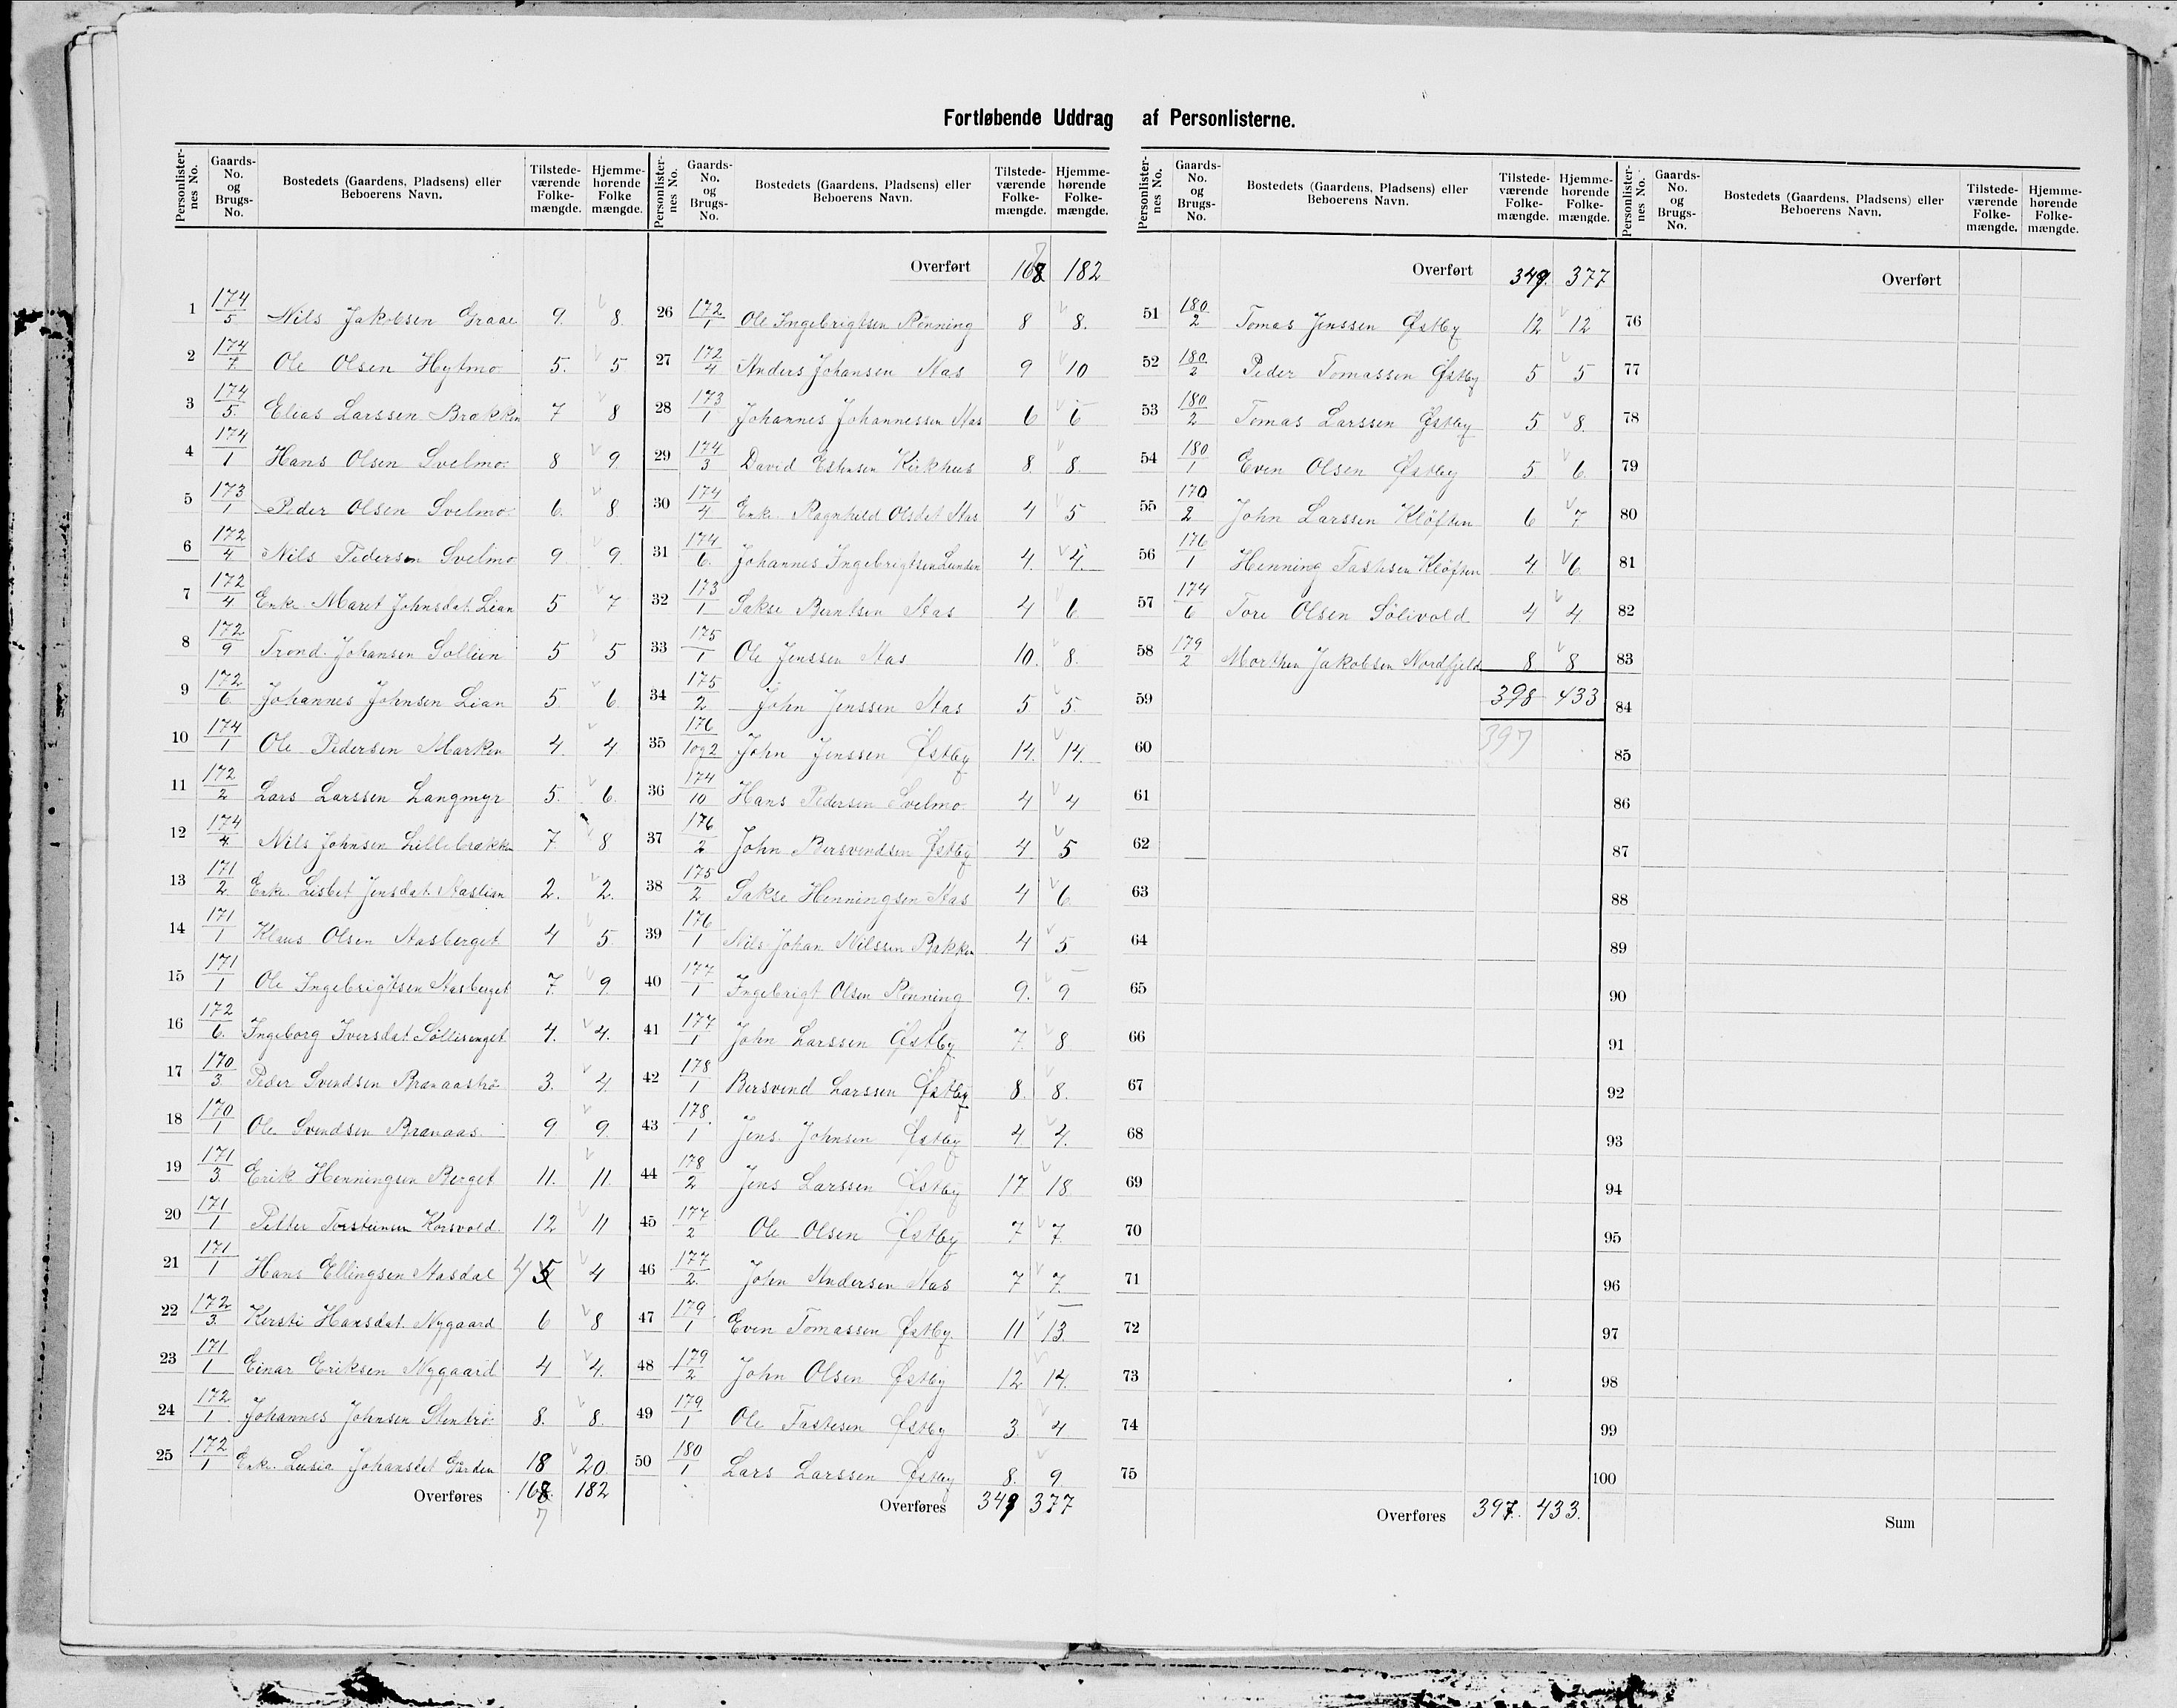 Fortløbende Uddrag af Personlisterne.
Personlisternes No. Gaards-No. og Brugs-No. Bostedets (Gaardens, Pladsens) eller Beboerens Navn. Tilstedeværende Folkemængde. Hjemmehørende Folke mængde.
1 174/5 Nils Jakobsen Graae 9. 8.
2 174/7 Ole Olsen Hytmo 5. 5
3 174/5. Elias Larssen Brakken 7 8
4 174/1 Hans Olsen Svelmo 8 9.
5 173/1 Peder Olsen Svelmo 6. 8
6 172/4 Nils Pedersen Svelmo 9 9.
7 172/4 Enke Maret Johnsdat. Lian 5 7
8 172/9 Trond Johansen Sollien 5 5
9 172/6 Johannes Johnsen Lian 5. 6.
10 174/1 Ole Pedersen Marken 4. 4.
11 172/2 Lars Larssen Langmyr 5. 6.
12 174/4. Nils Johnsen Lillebrakken 7 8
13 171/2. Enke Lisbet Jensdat. Aaslian 2. 2.
14 171/1 Klaus Olsen Aasberget 4 5
15 171/1 Ole Ingebrigtsen Aasberget 7. 9.
16 172/6. Ingeborg Iversdat. Sollisenget 4. 4.
17 170/3. Peder Svendsen Brænaastrø 3. 4.
18 170/1 Ole Svendsen Brænaas. 9 9.
19 171/3. Erik Henningsen Berget 11. 11.
20 171/1 Petter Torsteinsen Korsvold. 12 11
21 171/1 Hans Ellingsen Aasdal 4 5 4
22 172/3. Kersti Hansdat. Nygaard 6 8
23 171/1 Einar Eriksen Nygaard 4 4.
24 172/1 Johannes Johnsen Stentrø 8. 8.
25 172/1 Enke Lusia Johansdat Gården 18 20.
Overføres 168 182
7
Personlisternes No. Gaards-No. og Brugs-No. Bostedets (Gaardens, Pladsens) eller Beboerens Navn. Tilstedeværende Folkemængde. Hjemmehørende Folkemængde.
7
Overført 168 182
26 172/1 Ole Ingebrigtsen Rønning 8 8.
27 172/4 Anders Johansen Aas 9 10
28 173/1 Johannes Johannessen Aas 6 6
29 174/3 David Estensen Kirkhus 8. 8.
30 174/4 Enke Ragnhild Olsdat Aas 4 5
31 174/6. Johannes Ingebrigtsen Lunden 4. 4.
32 173/1 Sakse Berntsen Aas 4 6.
33 175/1 Ole Jenssen Aas 10. 8.
34 175/2 John Jenssen Aas 5 5.
35 176/1 og 2 John Jenssen Østby 14. 14.
36 174/10 Hans Pedersen Svelmo 4 4
37 176/2 John Bersvendsen Østby 4. 5
38 175/2 Sakse Henningsen Aas 4 6.
39 176/1 Nils Johan Nilssen Bakken 4 5.
40 177/1 Ingebrigt Olsen Rønning 9. 9
41 177/1 John Larssen Østby 7. 8
42 178/1 Bersvend Larssen Østby 8. 8.
43 178/1 Jens Johnsen Østby 4. 4.
44 178/2 Jens Larssen Østby 17 18
45 177/2 Ole Olsen Østby 7 7.
46 177/2. John Andersen Aas 7 7.
47 179/1 Even Tomassen Østby. 11 13.
48 179/2 John Olsen Østby 12 14.
49 179/1 Ole Tastesen Østby 3. 4
50 180/1 Lars Larssen Østby 8. 9.
Overføres 349 377
Personlisternes No. Gaards-No. og Brugs-No. Bostedets (Gaardens, Pladsens) eller Beboerens Navn. Tilstedeværende Folkemængde. Hjemmehørende Folkemængde.
Overført 349. 377
51 180/2 Tomas Jenssen Østby 12 12
52 180/2 Peder Tomassen Østby 5 5
53 180/2 Tomas Larssen Østby 5 8.
54 180/1 Even Olsen Østby 5. 6.
55 170/2 John Larssen Kløften 6 7
56 176/1 Henning Tastesen Kløften 4. 6.
57 174/6 Tore Olsen Sølivold 4 4
58 179/2 Morthen Jakobsen Nordfjeld 8 8
59 398 433
60 397
61
62
63
64
65
66
67
68
69
70
71
72
73
74
75
Overføres 397. 433.
Personlisternes No. Gaards-No. og Brugs-No. Bostedets (Gaardens, Pladsens) eller Beboerens Navn. Tilstedeværende Folkemængde. Hjemmehørende Folkemængde.
Overført
76
77
78
79
80
81
82
83
84
85
86
87
88
89
90
91
92
93
94
95
96
97
98
99
100
Sum